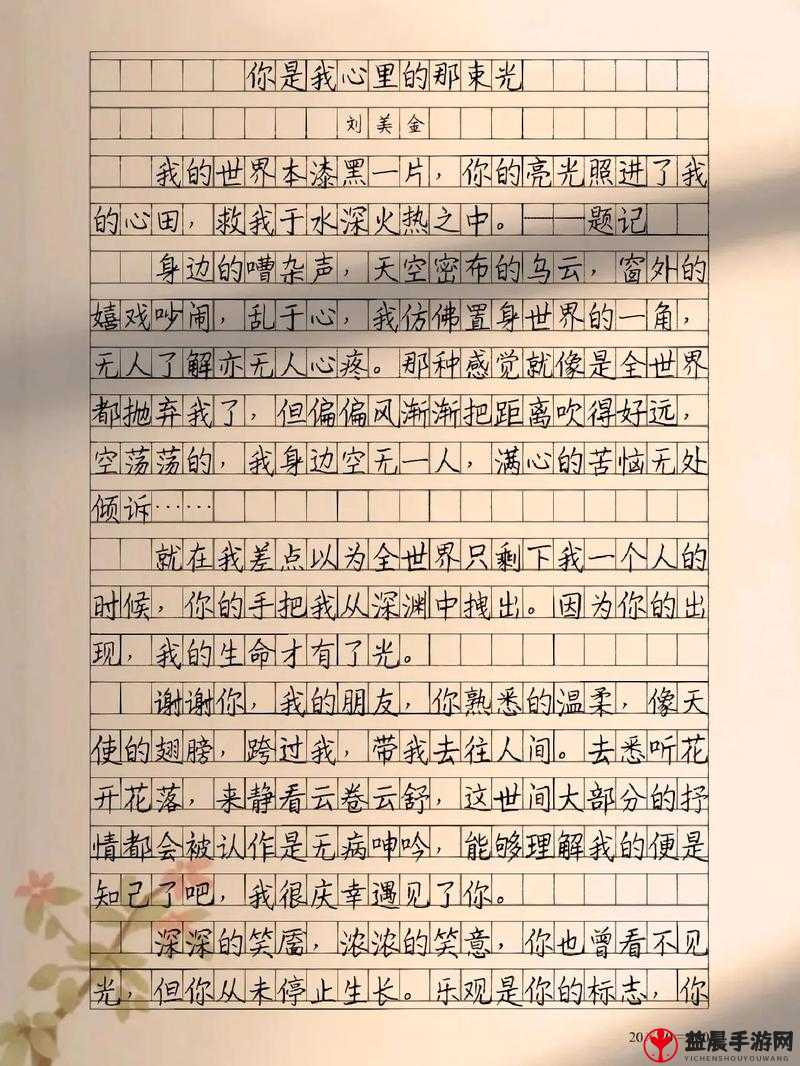 你是我心里的那束光
刘美金
我的世界本漆黑一片，你的亮光照进了我
的心田，救我于水深火热之中。——题记
身边的嘈杂声，天空密布的乌云，窗外的
嬉戏吵闹，乱于心，我仿佛置身世界的一角，
无人了解亦无人心疼。那种感觉就像是全世界
都抛弃我了，但偏偏风渐渐把距离吹得好远，
空荡荡的，我身边空无一人，满心的苦恼无处
倾诉……
就在我差点以为全世界只剩下我一个人的
时候，你的手把我从深渊中拽出。因为你的出
现，我的生命才有了光。
谢谢你，我的朋友，你熟悉的温柔，像天
使的翅膀，跨过我，带我去往人间。去悉听花
开花落，来静看云卷云舒，这世间大部分的抒
情都会被认作是无病呻吟，能够理解我的便是
知己了吧，我很庆幸遇见了你。
深深的笑靥，浓浓的笑意，你也曾看不见
光，但你从未停止生长。乐观是你的标志，你
益晨手游网
YICHENSHOUYOUWANG